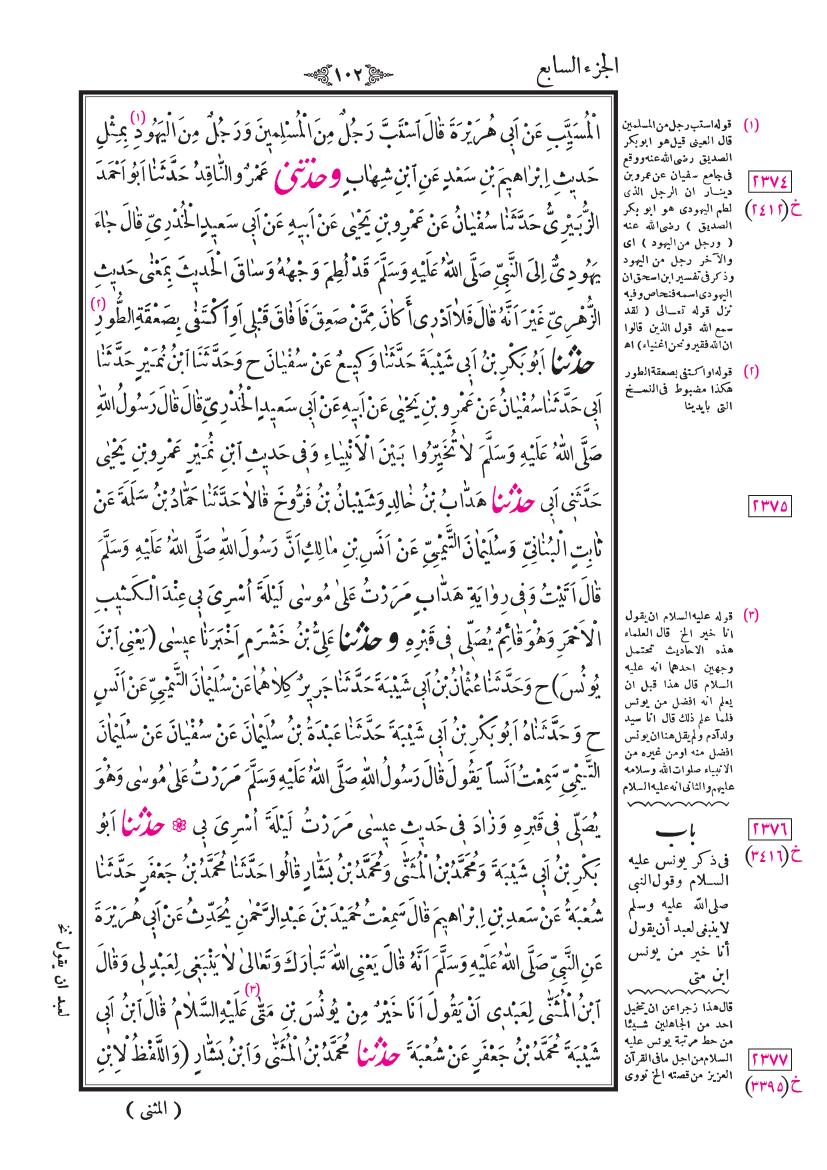 الجزء السابع
١٠٢
الْمُسَيِّبِ عَنْ أَبِي هُرَيْرَةَ قَالَ اسْتَبَّ رَجُلٌ مِنَ الْمُسْلِمِينَ وَرَجُلٌ مِنَ الْيَهُودِ (١) بِمِثْلِ
حَدِيثِ إِبْرَاهِيمَ بْنِ سَعْدٍ عَنِ ابْنِ شِهَابٍ وحدثنى عَمْرٌو النَّاقِدُ حَدَّثَنَا أَبُو أَحْمَدَ
الزُّبَيْرِيُّ حَدَّثَنَا سُفْيَانُ عَنْ عَمْرِو بْنِ يَحْيَى عَنْ أَبِيهِ عَنْ أَبِي سَعِيدٍ الْخُدْرِيِّ قَالَ جَاءَ
يَهُودِيٌّ إِلَى النَّبِيِّ صَلَّى اللهُ عَلَيْهِ وَسَلَّمَ قَدْ لُطِمَ وَجْهُهُ وَسَاقَ الْحَدِيثَ بِمَعْنَى حَدِيثِ
الزُّهْرِيِّ غَيْرَ أَنَّهُ قَالَ فَلَا أَدْرِي أَكَانَ مِمَّنْ صَعِقَ فَأَفَاقَ قَبْلِي أَوِ اكْتَفَى بِصَعْقَةِ الطُّورِ (٢)
حدثنا أَبُو بَكْرِ بْنُ أَبِي شَيْبَةَ حَدَّثَنَا وَكِيعٌ عَنْ سُفْيَانَ ح وَحَدَّثَنَا ابْنُ نُمَيْرٍ حَدَّثَنَا
أَبِي حَدَّثَنَا سُفْيَانُ عَنْ عَمْرِو بْنِ يَحْيَى عَنْ أَبِيهِ عَنْ أَبِي سَعِيدٍ الْخُدْرِيِّ قَالَ قَالَ رَسُولُ اللهِ
صَلَّى اللهُ عَلَيْهِ وَسَلَّمَ لَا تُخَيِّرُوا بَيْنَ الْأَنْبِيَاءِ وَفِي حَدِيثِ ابْنِ نُمَيْرٍ عَمْرِو بْنِ يَحْيَى
حَدَّثَنِي أَبِي حدثنا هَدَّابُ بْنُ خَالِدٍ وَشَيْبَانُ بْنُ فَرُّوخَ قَالَا حَدَّثَنَا حَمَّادُ بْنُ سَلَمَةَ عَنْ
ثَابِتٍ الْبُنَانِيِّ وَسُلَيْمَانَ التَّيْمِيِّ عَنْ أَنَسِ بْنِ مَالِكٍ أَنَّ رَسُولَ اللهِ صَلَّى اللهُ عَلَيْهِ وَسَلَّمَ
قَالَ أَتَيْتُ وَفِي رِوَايَةِ هَدَّابٍ مَرَرْتُ عَلَى مُوسَى لَيْلَةَ أُسْرِيَ بِي عِنْدَ الْكَثِيبِ
الْأَحْمَرِ وَهُوَ قَائِمٌ يُصَلِّي فِي قَبْرِهِ وحدثنا عَلِيُّ بْنُ خَشْرَمٍ أَخْبَرَنَا عِيسَى (يَعْنِي ابْنَ
يُونُسَ) ح وَحَدَّثَنَا عُثْمَانُ بْنُ أَبِي شَيْبَةَ حَدَّثَنَا جَرِيرٌ كِلَاهُمَا عَنْ سُلَيْمَانَ التَّيْمِيِّ عَنْ أَنَسٍ
ح وَحَدَّثَنَاهُ أَبُو بَكْرِ بْنُ أَبِي شَيْبَةَ حَدَّثَنَا عَبْدَةُ بْنُ سُلَيْمَانَ عَنْ سُفْيَانَ عَنْ سُلَيْمَانَ
التَّيْمِيِّ سَمِعْتُ أَنَسًا يَقُولُ قَالَ رَسُولُ اللهِ صَلَّى اللهُ عَلَيْهِ وَسَلَّمَ مَرَرْتُ عَلَى مُوسَى وَهُوَ
يُصَلِّي فِي قَبْرِهِ وَزَادَ فِي حَدِيثِ عِيسَى مَرَرْتُ لَيْلَةَ أُسْرِيَ بِي حدثنا أَبُو
بَكْرِ بْنُ أَبِي شَيْبَةَ وَمُحَمَّدُ بْنُ الْمُثَنَّى وَمُحَمَّدُ بْنُ بَشَّارٍ قَالُوا حَدَّثَنَا مُحَمَّدُ بْنُ جَعْفَرٍ حَدَّثَنَا
شُعْبَةُ عَنْ سَعْدِ بْنِ إِبْرَاهِيمَ قَالَ سَمِعْتُ حُمَيْدَ بْنَ عَبْدِ الرَّحْمَنِ يُحَدِّثُ عَنْ أَبِي هُرَيْرَةَ
عَنِ النَّبِيِّ صَلَّى اللهُ عَلَيْهِ وَسَلَّمَ أَنَّهُ قَالَ يَعْنِي اللهَ تَبَارَكَ وَتَعَالَى لَا يَنْبَغِي لِعَبْدٍ لِي وَقَالَ
ابْنُ الْمُثَنَّى لِعَبْدِي أَنْ يَقُولَ أَنَا خَيْرٌ مِنْ يُونُسَ بْنِ مَتَّى (٣) عَلَيْهِ السَّلَامُ قَالَ ابْنُ أَبِي
شَيْبَةَ مُحَمَّدُ بْنُ جَعْفَرٍ عَنْ شُعْبَةَ حدثنا مُحَمَّدُ بْنُ الْمُثَنَّى وَابْنُ بَشَّارٍ (وَاللَّفْظُ لِابْنِ
( المثنى )
(١) قوله استب رجل من المسلمين
قال العينى قيل هو ابو بكر
الصديق رضى الله عنه ووقع
فى جامع سفيان عن عمرو بن
دينار ان الرجل الذى
لطم اليهودى هو ابو بكر
الصديق ) رضى الله عنه
( ورجل من اليهود ) اى
والآخر رجل من اليهود
وذكر فى تفسير ابن اسحق ان
اليهودى اسمه فنحاص وفيه
نزل قوله تعالى ( لقد
سمع الله قول الذين قالوا
ان الله فقير ونحن اغنياء ) اه
(٢) قوله او اكتفى بصعقة الطور
هكذا مضبوط فى النسخ
التى بايدينا
(٣) قوله عليه السلام ان يقول
انا خير الخ قال العلماء
هذه الاحاديث تحتمل
وجهين احدهما انه عليه
السلام قال هذا قبل ان
يعلم انه افضل من يونس
فلما علم ذلك قال انا سيد
ولد آدم ولم يقل هنا ان يونس
افضل منه او من غيره من
الانبياء صلوات الله وسلامه
عليهم والثانى انه عليه السلام
باب
فى ذكر يونس عليه
السلام وقول النبى
صلى الله عليه وسلم
لا ينبغى لعبد أن يقول
أنا خير من يونس
ابن متى
قال هذا زجرا عن ان يتخيل
احد من الجاهلين شيئا
من حط مرتبة يونس عليه
السلام من اجل ما فى القرآن
العزيز من قصته الخ نووى
٢٣٧٤
خ (٢٤١٢)
٢٣٧٥
٢٣٧٦
خ (٣٤١٦)
٢٣٧٧
خ (٣٣٩٥)
لعبد ان يقول نخ